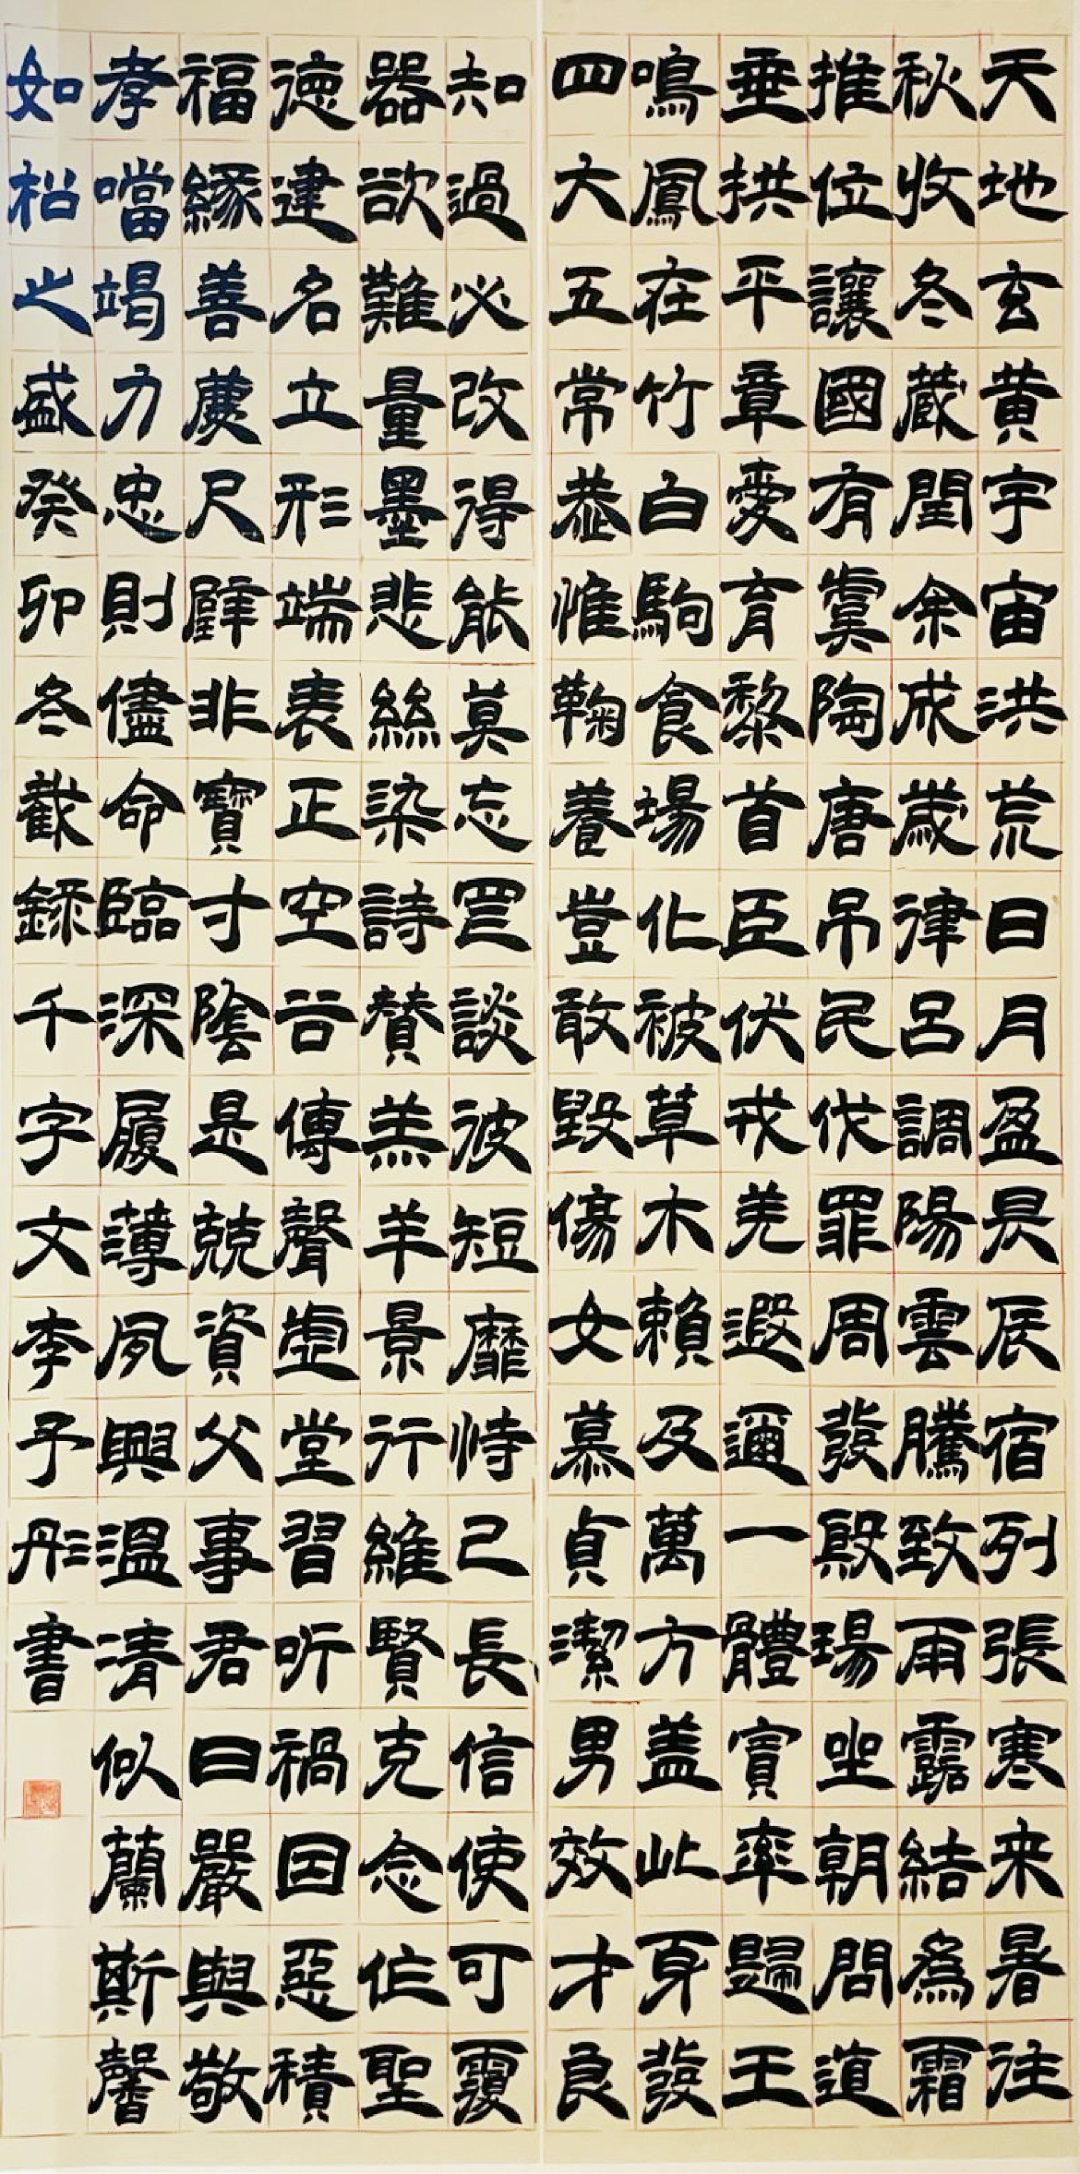 天地玄黄宇宙洪荒日月盈昃辰宿列張寒来暑往
秋收冬蔵閏余成歲律吕調陽雲騰致雨露結為霜
推位讓國有虞陶唐吊民伐罪周發殷湯坐朝問道
垂拱平章愛育黎首臣伏戎羌遐邇一體賓率歸王
鳴鳳在竹白駒食場化被草木賴及萬方盖此身發
四大五常恭惟鞠養豈敢毀傷女慕貞潔男效才良
知過必改得能莫忘罔談彼短靡恃己長信使可覆
器欲難量墨悲絲染詩贊羔羊景行維賢克念作聖
德建名立形端表正空谷傳聲虛堂習听禍因惡積
福緣善慶尺璧非寶寸陰是競資父事君曰嚴與敬
孝當竭力忠則儘命臨深履薄夙興溫凊似蘭斯馨
如松之盛癸卯冬截錄千字文李予彤書